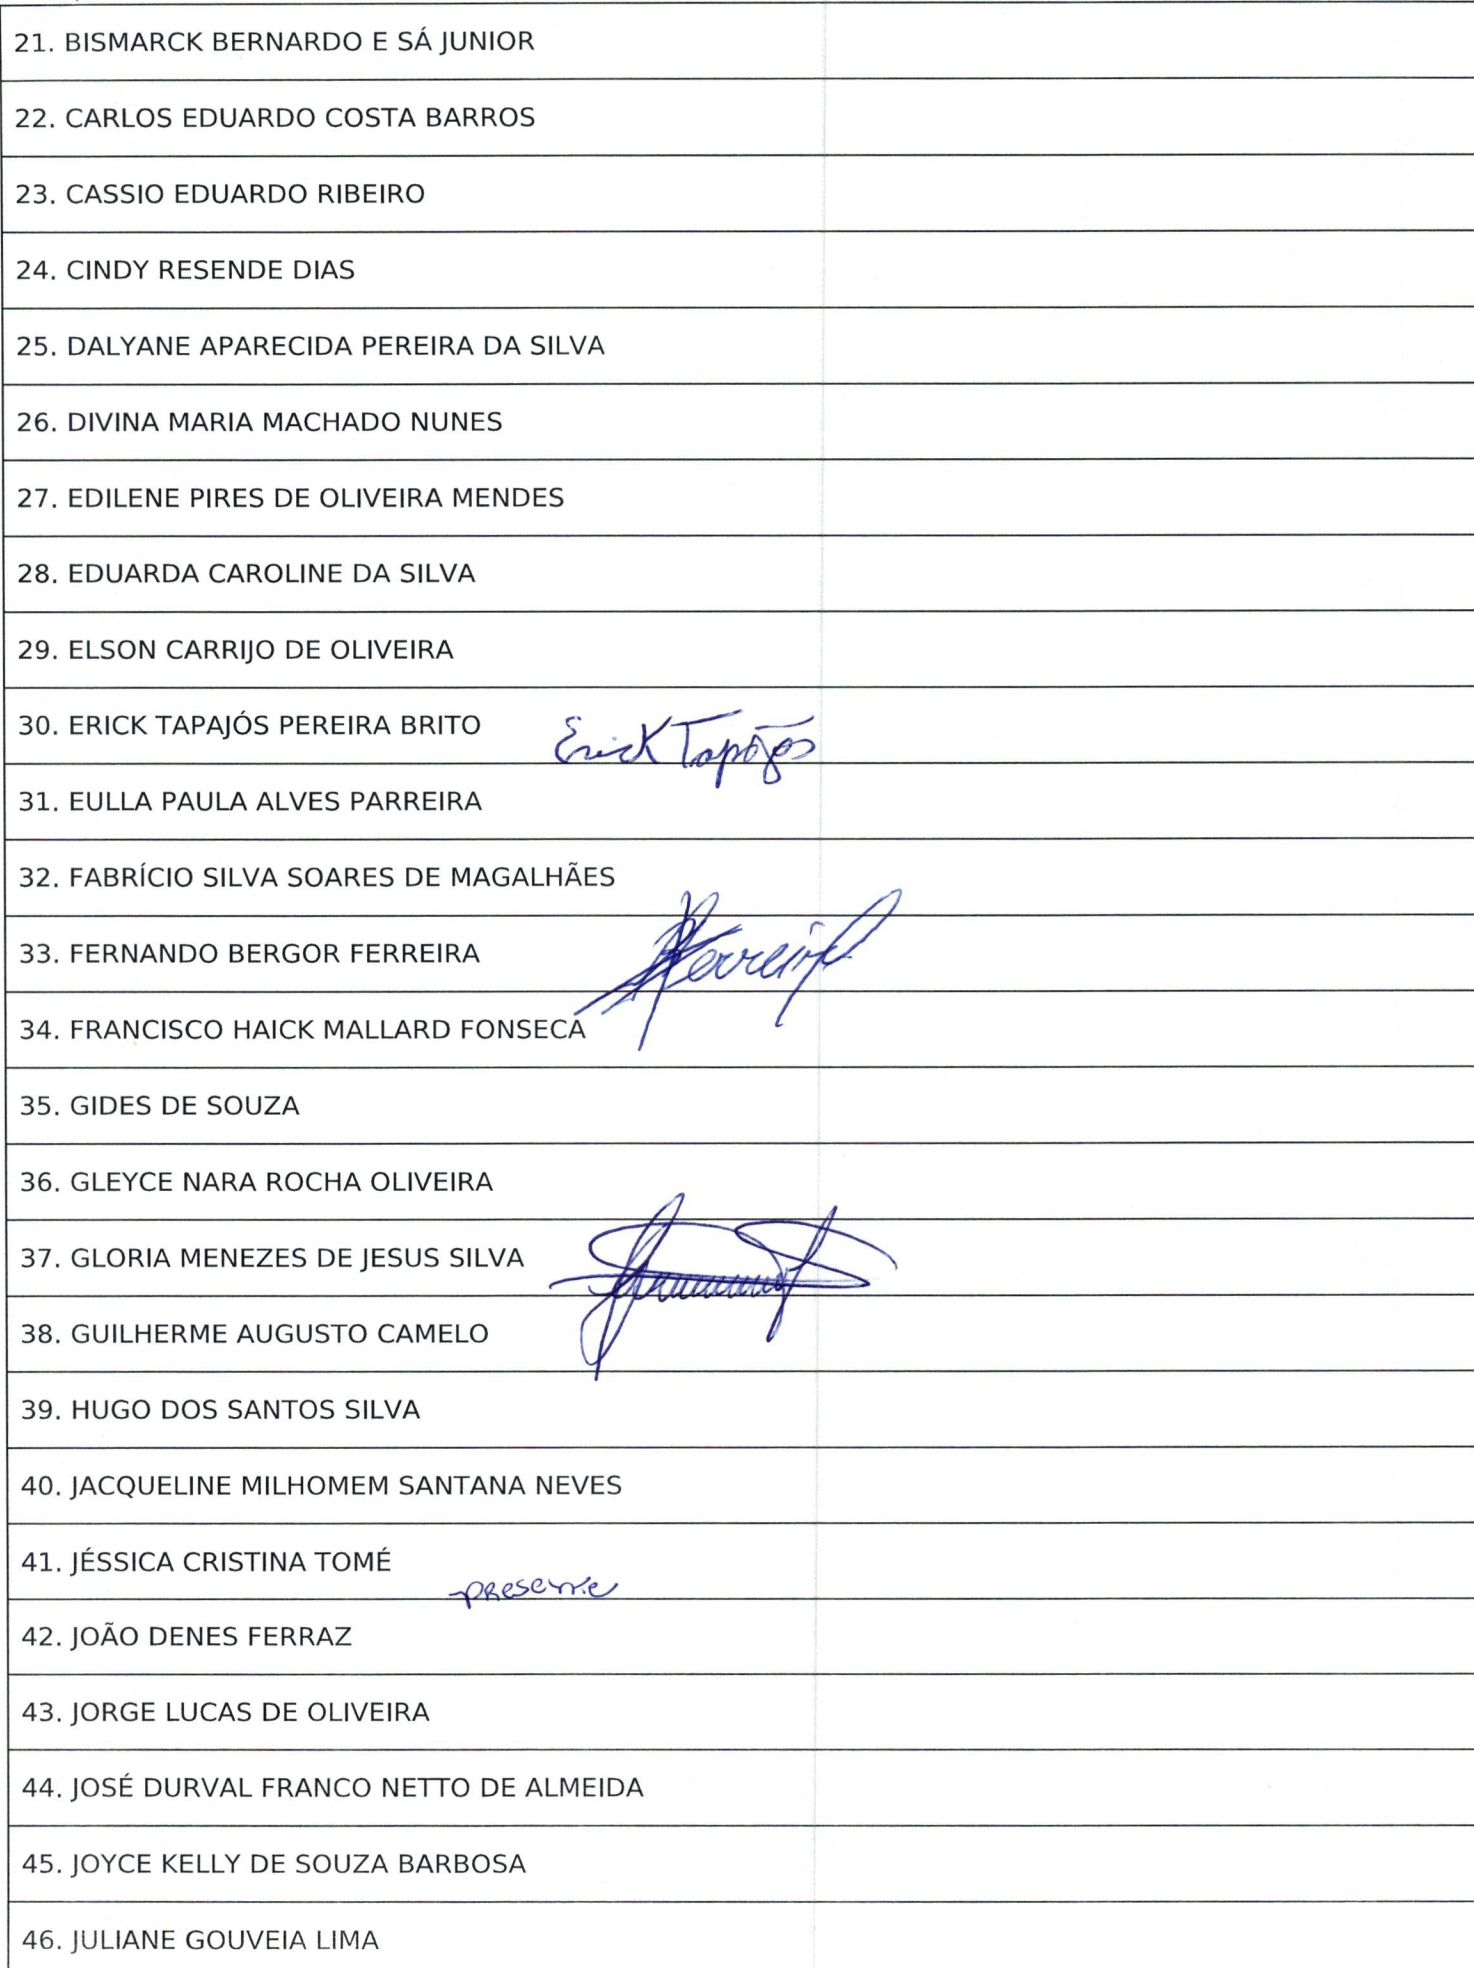 21. BISMARCK BERNARDO E SÁ JUNIOR
22. CARLOS EDUARDO COSTA BARROS
23. CASSIO EDUARDO RIBEIRO
24. CINDY RESENDE DIAS
25. DALYANE APARECIDA PEREIRA DA SILVA
26. DIVINA MARIA MACHADO NUNES
27. EDILENE PIRES DE OLIVEIRA MENDES
28. EDUARDA CAROLINE DA SILVA
29. ELSON CARRIJO DE OLIVEIRA
30. ERICK TAPAJÓS PEREIRA BRITO Erick Tapajós
31. EULLA PAULA ALVES PARREIRA
32. FABRÍCIO SILVA SOARES DE MAGALHÃES
33. FERNANDO BERGOR FERREIRA Ferreira
34. FRANCISCO HAICK MALLARD FONSECA
35. GIDES DE SOUZA
36. GLEYCE NARA ROCHA OLIVEIRA
37. GLORIA MENEZES DE JESUS SILVA
38. GUILHERME AUGUSTO CAMELO
39. HUGO DOS SANTOS SILVA
40. JACQUELINE MILHOMEM SANTANA NEVES
41. JÉSSICA CRISTINA TOMÉ presente
42. JOÃO DENES FERRAZ
43. JORGE LUCAS DE OLIVEIRA
44. JOSÉ DURVAL FRANCO NETTO DE ALMEIDA
45. JOYCE KELLY DE SOUZA BARBOSA
46. JULIANE GOUVEIA LIMA